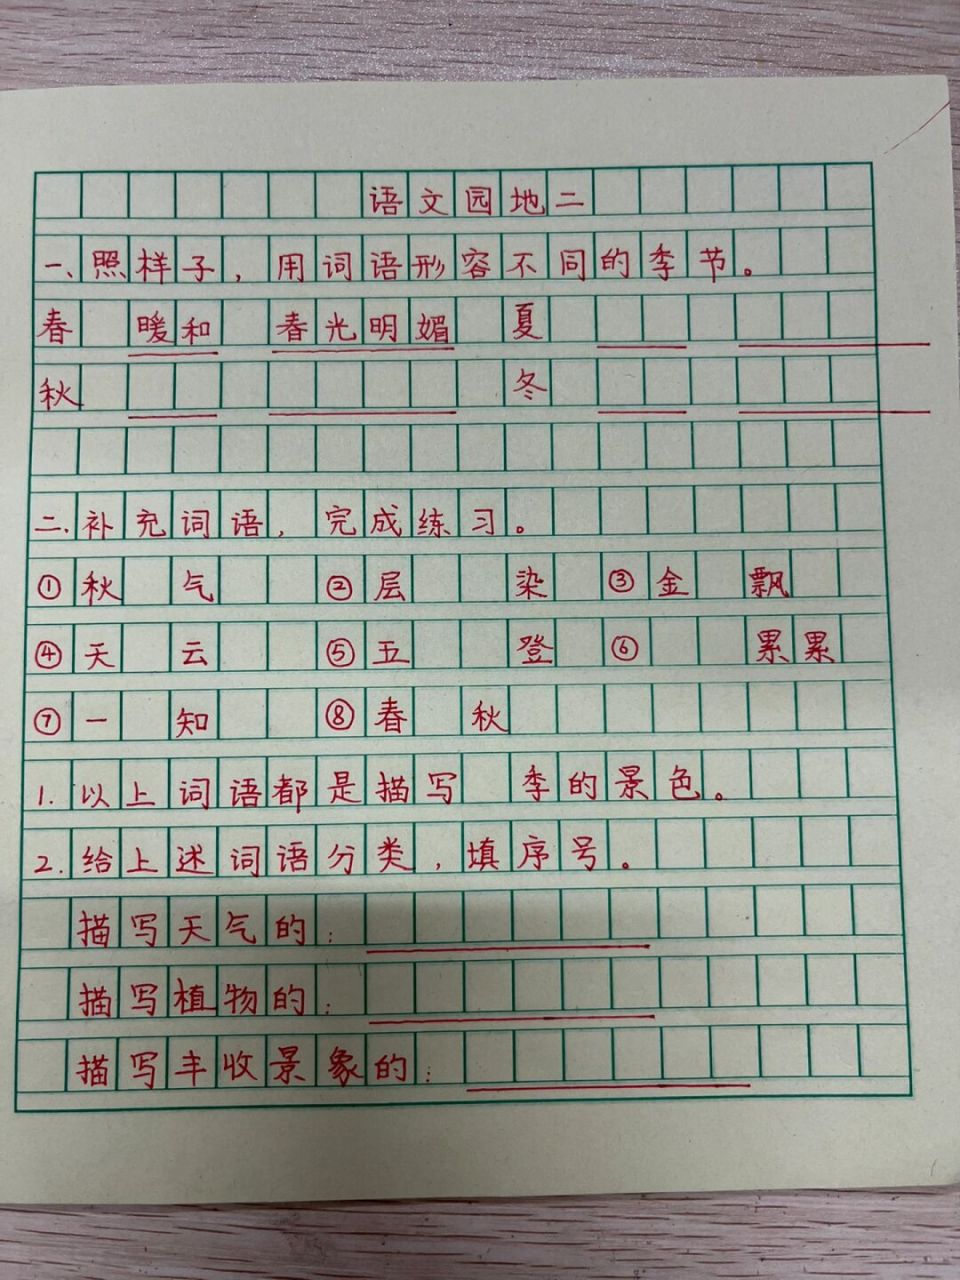 语文园地二
一、照样子，用词语形容不同的季节。
春 暖和 春光明媚 夏
秋 冬
二.补充词语，完成练习。
①秋 气 ②层 染 ③金 飘
④天 云 ⑤五 登 ⑥ 累累
⑦一 知 ⑧春 秋
1.以上词语都是描写 季的景色。
2.给上述词语分类，填序号。
描写天气的：
描写植物的：
描写丰收景象的：